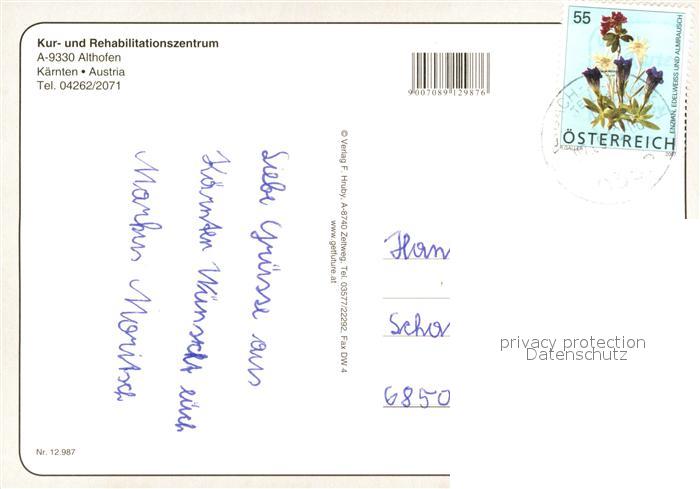 Kur- und Rehabilitationszentrum
A-9330 Althofen
Kärnten • Austria
Tel. 04262/2071
9007089 129876
55
ENZIAN, EDELWEISS UND ALMRAUSCH
ÖSTERREICH
2007
© Verlag F. Hruby, A-8740 Zeltweg, Tel. 03577/22292, Fax DW 4
www.getfuture.at
Liebe Grüsse aus
Kärnten Wünscht euch
Markus Moritsch
Han
Scho
6850
privacy protection
Datenschutz
Nr. 12.987